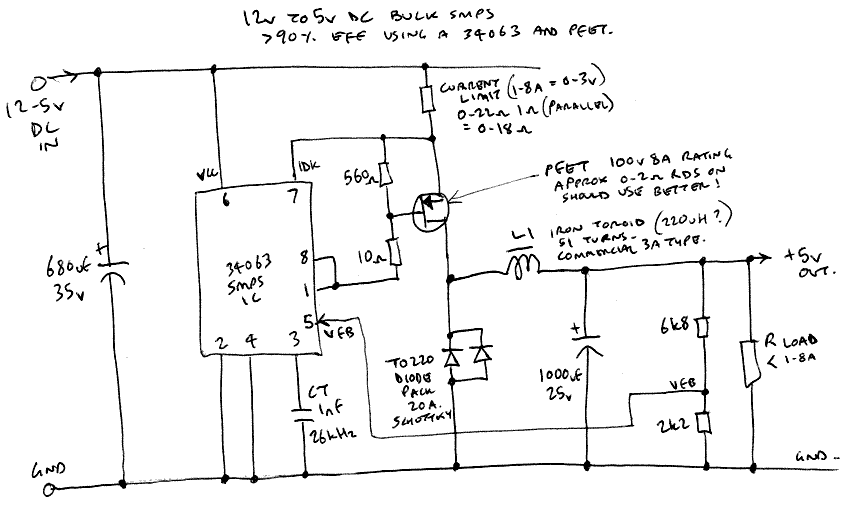 12v TO 5v DC BULK SMPS
>90% EFF USING A 34063 AND PFET.
12-5v
DC
IN
CURRENT
LIMIT (1-8A = 0-3v)
0-22Ω 1Ω (PARALLEL)
= 0-18Ω
VCC
IPK
6
7
560Ω
PFET 100V 8A RATING
APPROX 0-2Ω RDS ON
SHOULD USE BETTER!
10Ω
L1
IRON TOROID (220uH?)
51 TURNS-
COMMERCIAL 3A TYPE.
34063
SMPS
IC
8
1
5
VFB
2
4
3
+
680uF
35v
+5v
OUT.
6k8
R LOAD
< 1-8A
TO220
DIODE
PACK
20A.
SCHOTTKY
+
1000uF
25v
VFB
2k2
CT
1nF
26kHz
GND
GND-